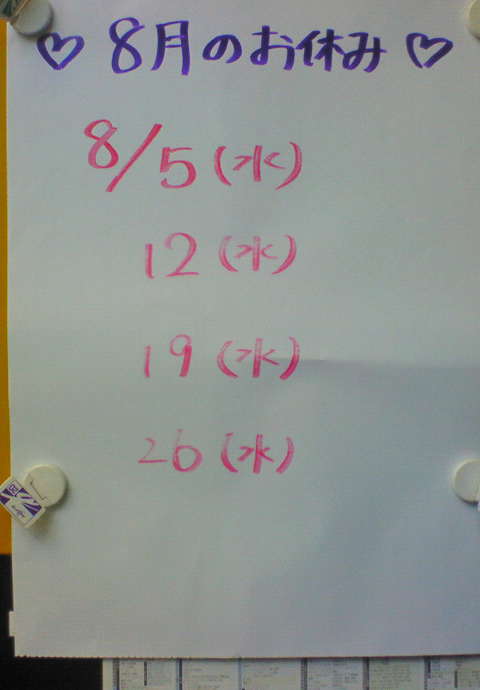 ♡ 8月のお休み ♡
8/5(水)
12(水)
19(水)
26(水)